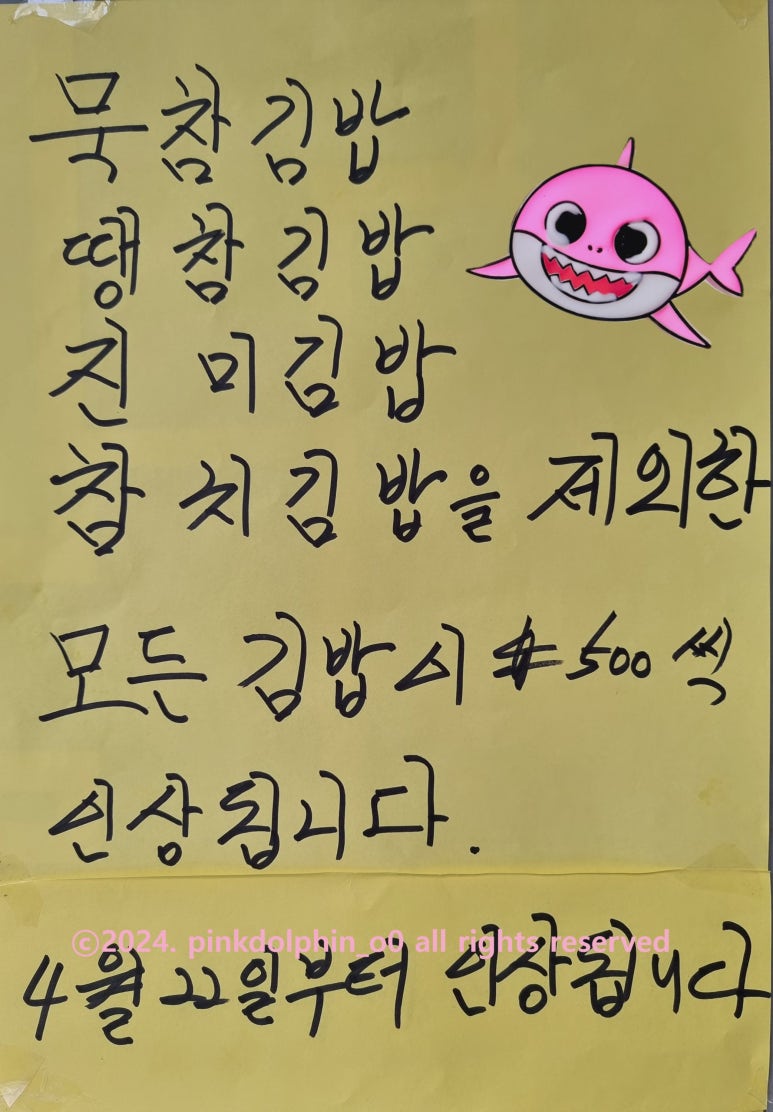 묵참김밥
땡참김밥
진미김밥
참치김밥을 제외한
모든 김밥시 ₩500 씩
인상됩니다.
©2024. pinkdolphin_o0 all rights reserved
4월 22일부터 인상됩니다